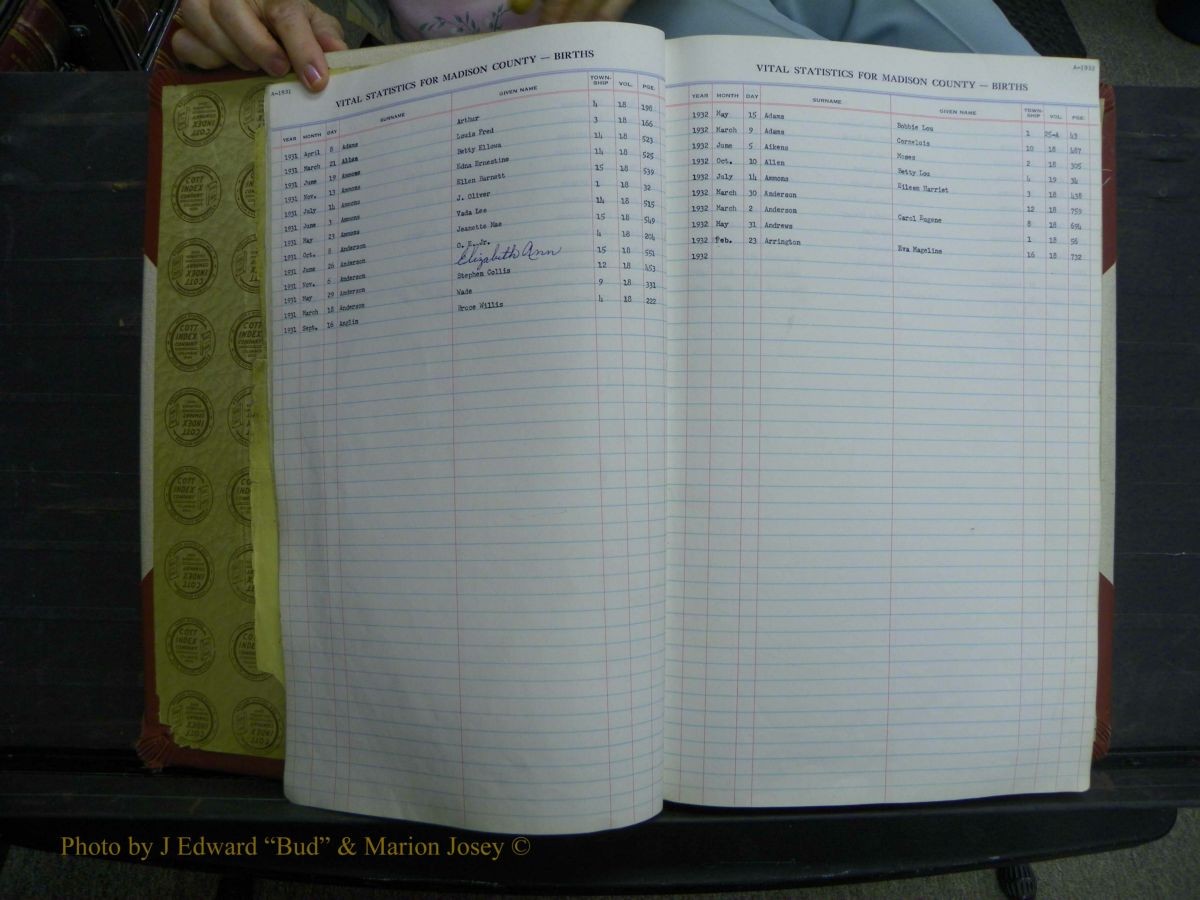 A-1931
VITAL STATISTICS FOR MADISON COUNTY — BIRTHS
YEAR MONTH DAY SURNAME GIVEN NAME TOWN-SHIP VOL. PGE.
1931 April 8 Adams Arthur 4 18 198
1931 March 21 Allen Louis Fred 3 18 166
1931 June 19 Ammons Betty Ellowa 14 18 523
1931 Nov. 13 Ammons Edna Ernestine 14 18 525
1931 July 14 Ammons Ellen Barnett 15 18 539
1931 June 3 Ammons J. Oliver 1 18 32
1931 May 23 Ammons Vada Lee 14 18 515
1931 Oct. 8 Anderson Jeanette Mae 15 18 549
1931 June 26 Anderson O. E. Jr. 4 18 204
1931 Nov. 6 Anderson Elizabeth Ann 15 18 551
1931 May 29 Anderson Stephen Collis 12 18 453
1931 March 18 Anderson Wade 9 18 331
1931 Sept. 16 Anglin Bruce Willis 4 18 222
A-1932
VITAL STATISTICS FOR MADISON COUNTY — BIRTHS
YEAR MONTH DAY SURNAME GIVEN NAME TOWN-SHIP VOL. PGE.
1932 May 15 Adams Bobbie Lou 1 25-A 43
1932 March 9 Adams Cornelois 10 18 487
1932 June 5 Aikens Moses 2 18 305
1932 Oct. 10 Allen Betty Lou 4 19 34
1932 July 14 Ammons Eileen Harriet 3 18 438
1932 March 30 Anderson 12 18 759
1932 March 2 Anderson Carol Eugene 8 18 694
1932 May 31 Andrews 1 18 56
1932 Feb. 23 Arrington Eva Mageline 16 18 732
1932
COTT INDEX COMPANY
Photo by J Edward “Bud” & Marion Josey ©